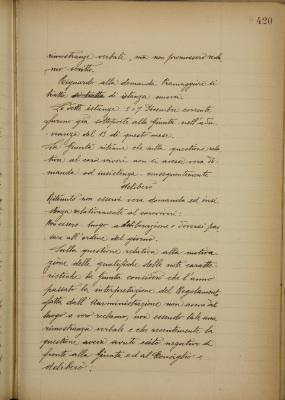 420
rimostranze verbali, ma non promossero recla-
mo scritto.
Riguardo alla domanda Pramaggiore si
tratta di istanza nuova.
Le dette istanze 5 e 7 Dicembre corrente
furono già sottoposte alla Giunta nell'adu-
nanza del 13 di questo mese.
La Giunta ritiene che sulla questione rela-
tiva al caro viveri non vi avesse vera do-
manda ed insistenza conseguentemente
deliberò
Ritenuto non esservi vera domanda ed insi-
stenza relativamente al caroviveri:
Non essere luogo a deliberazione e doversi pas
sare all'ordine del giorno.
Sulla questione relativa alla motiva
zione delle qualifiche delle note caratte-
ristiche la Giunta considerò che l'anno
passato la interpretazione del Regolamento
fatta dall'Amministrazione non aveva dato
luogo a vero reclamo, non essendo tale una
rimostranza verbale e che recentemente la
questione aveva avuto esito negativo di
fronte alla Giunta ed al Consiglio e
deliberò: